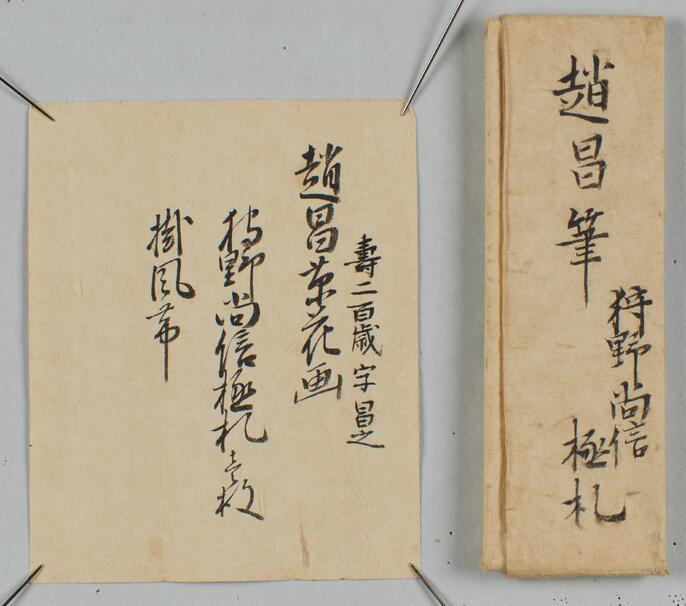 壽二百歳字昌之
趙昌草花画
狩野尚信極札壱枚
掛風帯
趙昌筆
狩野尚信
極札